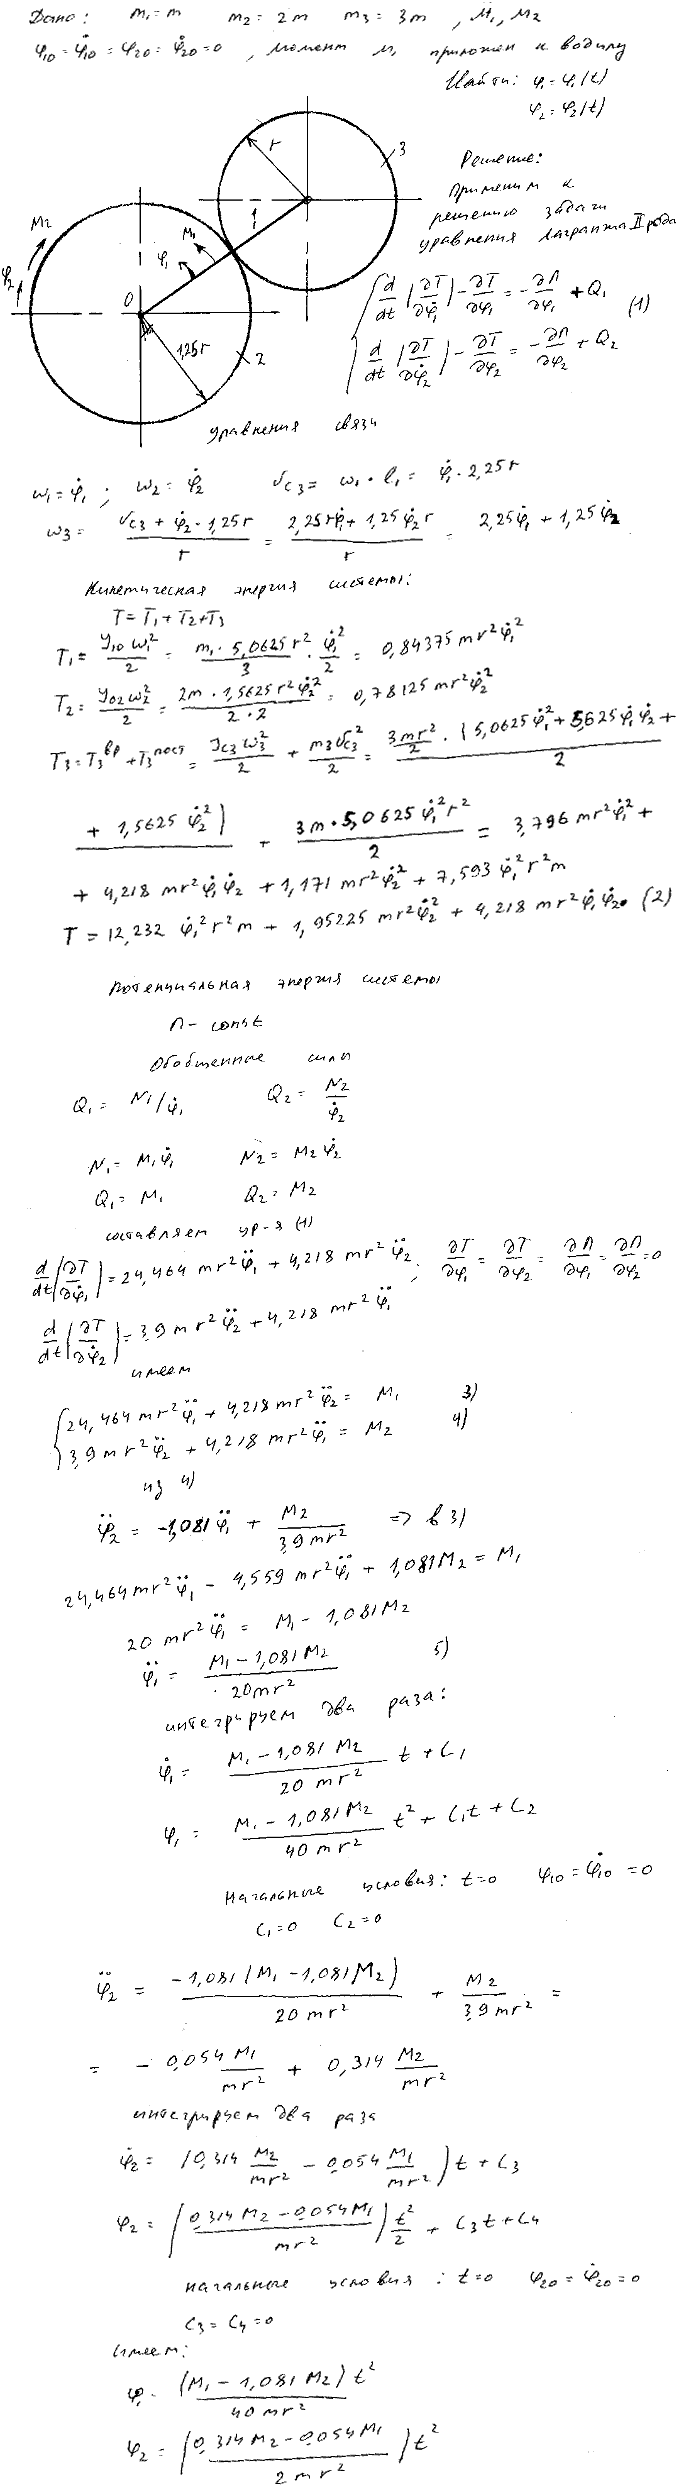 Дано: m₁=m m₂=2m m₃=3m, M₁, M₂
φ₁₀=φ̇₁₀=φ₂₀=φ̇₂₀=0, момент M₁ приложен к водилу
Найти: φ₁=φ₁(t)
φ₂=φ₂(t)
r
3
Решение:
Применим к
решению задачи
уравнения Лагранжа II рода
M₂
φ₂
M₁
φ₁
1
0
1,25r
2
{ d/dt (∂T/∂φ̇₁) - ∂T/∂φ₁ = -∂П/∂φ₁ + Q₁
(1)
d/dt (∂T/∂φ̇₂) - ∂T/∂φ₂ = -∂П/∂φ₂ + Q₂
уравнения связи
ω₁=φ̇₁; ω₂=φ̇₂ Vc₃= ω₁·l₁= φ̇₁·2,25r
ω₃= (Vc₃+φ̇₂·1,25r)/r = (2,25rφ̇₁+1,25φ̇₂r)/r = 2,25φ̇₁+1,25φ̇₂
Кинетическая энергия системы:
T=T₁+T₂+T₃
T₁= J₁₀ω₁²/2 = m₁·5,0625r²/3 · φ̇₁²/2 = 0,84375mr²φ̇₁²
T₂= J₀₂ω₂²/2 = 2m·1,5625r²φ̇₂²/2·2 = 0,78125mr²φ̇₂²
T₃=T₃ᵇᵖ+T₃ᵖᵒˢᵗ = Jc₃ω₃²/2 + m₃Vc₃²/2 = 3mr²/2·(5,0625φ̇₁²+5,625φ̇₁φ̇₂+
+1,5625φ̇₂²)/2 + 3m·5,0625φ̇₁²r²/2 = 3,796mr²φ̇₁²+
+4,218mr²φ̇₁φ̇₂+1,171mr²φ̇₂²+7,593φ̇₁²r²m
T=12,232φ̇₁²r²m+1,95225mr²φ̇₂²+4,218mr²φ̇₁φ̇₂. (2)
Потенциальная энергия системы
П-const
Обобщенные силы
Q₁= N₁/φ̇₁ Q₂= N₂/φ̇₂
N₁= M₁φ̇₁ N₂= M₂φ̇₂
Q₁= M₁ Q₂= M₂
составляем ур-я (1)
d/dt(∂T/∂φ̇₁)=24,464mr²φ̈₁+4,218mr²φ̈₂; ∂T/∂φ₁=∂T/∂φ₂=∂П/∂φ₁=∂П/∂φ₂=0
d/dt(∂T/∂φ̇₂)=3,9mr²φ̈₂+4,218mr²φ̈₁
имеем
{24,464mr²φ̈₁+4,218mr²φ̈₂= M₁ 3)
3,9mr²φ̈₂+4,218mr²φ̈₁= M₂ 4)
из 4)
φ̈₂= -1,081φ̈₁+ M₂/3,9mr² => в 3)
24,464mr²φ̈₁-4,559mr²φ̈₁+1,081M₂=M₁
20mr²φ̈₁= M₁-1,081M₂
φ̈₁= (M₁-1,081M₂)/20mr² 5)
интегрируем два раза:
φ̇₁= (M₁-1,081M₂)/20mr² t+C₁
φ₁= (M₁-1,081M₂)/40mr² t²+C₁t+C₂
Начальные условия: t=0 φ₁₀=φ̇₁₀=0
C₁=0 C₂=0
φ̈₂= -1,081(M₁-1,081M₂)/20mr² + M₂/3,9mr² =
= -0,054 M₁/mr² + 0,314 M₂/mr²
интегрируем два раза
φ̇₂= (0,314 M₂/mr² - 0,054 M₁/mr²)t+C₃
φ₂= ((0,314M₂-0,054M₁)/mr²) t²/2 + C₃t+C₄
начальные условия: t=0 φ₂₀=φ̇₂₀=0
C₃=C₄=0
Имеем:
φ₁= (M₁-1,081M₂)t²/40mr²
φ₂= ((0,314M₂-0,054M₁)/2mr²)t²